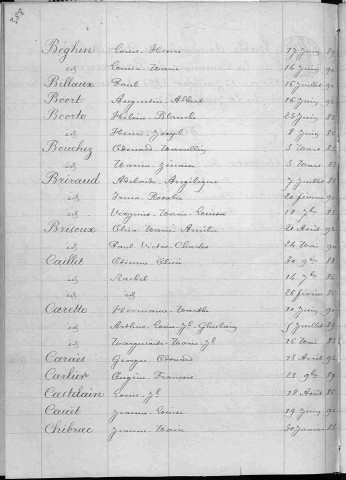 Béghin Louis-Henri 17 Juin 89
id Louisa-Marie 14 Juin 90
Billaux Paul 16 Juillet
Boort Augustin-Albert 16 Juin 92
Boorte Hélène-Blanche 23 Juin 85
id Henri-Joseph 8 Juin
Bouchez Edouard 3 Mars 83
id Maria-Zénaïs 3 Mars 83
Briraud Adelaïde-Angélique 7 Juillet
id Irma-Rosalie 20 février
id Virginie-Marie-Louise 18 7bre
Brisoux Cléa-Marie 21 Août 92
id Paul-Victor-Charles 24 Mai 90
Caillet Etienne 30 9bre
id Rachel 14 7bre
id id 26 février
Carette Hermance-Marthe 10 Juin 90
id Arthur-Louis-Jh-Ghislain 5 Juillet 89
id Marguerite-Marie-Jh 16 Mai
Carais Georges-Edouard 13 Avril 92
Carlier Eugène-François 23 9bre
Castelain Louis-Jh 18 Août
Cauet Jeanne-Louise 19 Juin
Chibrac Jeanne-Marie 30 Janvier